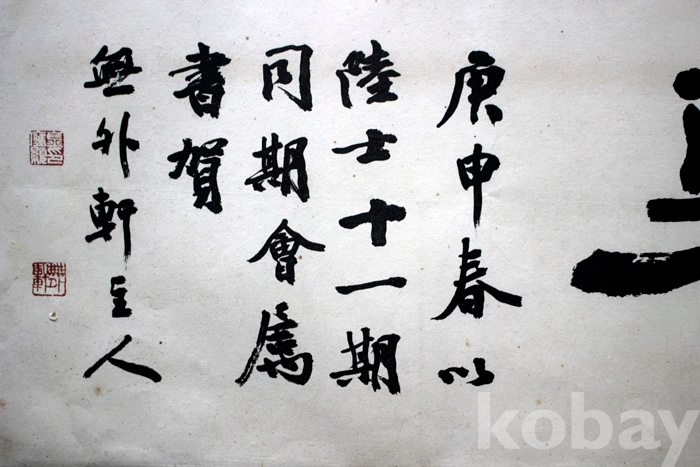 庚申春以
陸士十一期
同期會属
書賀
無外軒主人
kobay